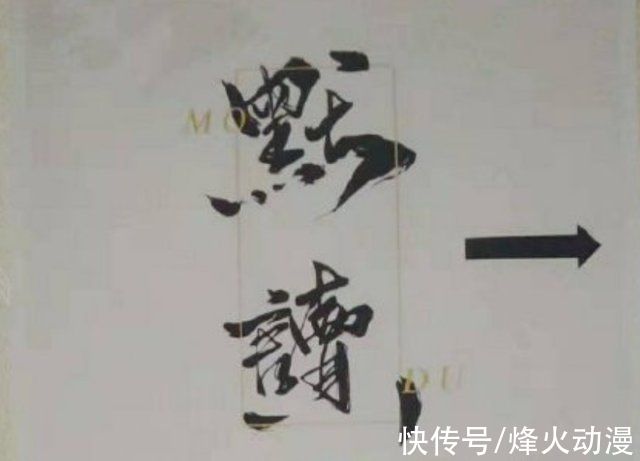 默
MO
讀
DU
快传号/烽火动漫